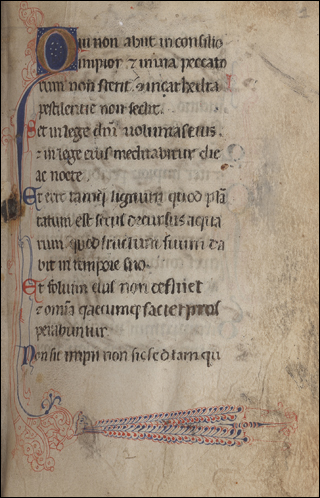 Qui non abiit in consilio
impior ⁊ in uia peccato
rum non stetit ⁊ in cathedra
pestilentie non sedit.
Set in lege dñi uoluntas eius
⁊ in lege eius meditabitur die
ac nocte
Et erit tamq̄ lignum quod plā
tatum est secus decursus aqua
rum quod fructum suum da
bit in tempore suo.
Et folium eius non defluet
⁊ omīa quecumq; faciet pros
perabuntur.
Non sic impii non sic sed tam qu